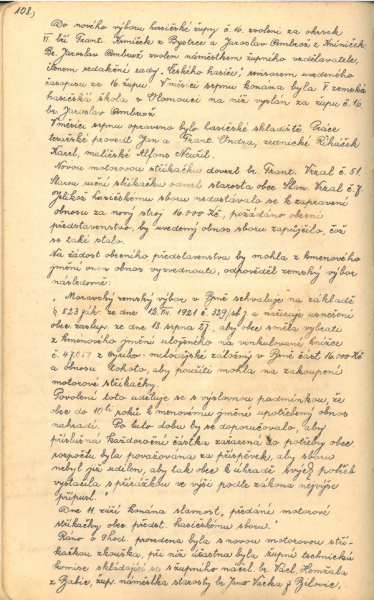 108.)
Do nového výboru hasičské župy č. 16. zvoleni za okrsek
VI. bří Frant. Šimíček z Bystrce a Jaroslav Ambrož z Kníniček.
Br. Jaroslav Ambrož zvolen náměstkem župního vzdělavatele,
členem redakční rady „Českého hasiče", revisorem uvedeného
časopisu za 16. župu. V měsíci srpnu konána byla V. zemská
hasičská škola v Olomouci na níž vyslán za župu č. 16.
br. Jaroslav Ambrož.
V měsíci srpnu opraveno bylo hasičské skladiště. Práce
tesařské provedl Jan a Frant. Ondra, zednické Řiháček
Karel, malířské Alfons Neužil.
Novou motorovou stříkačku dovezl br. Frant. Vrzal č. 51.
Starou ruční stříkačku odvezl starosta obce Stan. Vrzal č. 7.
Jelikož hasičskému sboru nedostávalo se k zapravení
obnosu za nový stroj 16.000 Kč, požádáno obecní
představenstvo, by uvedený obnos sboru zapůjčilo, což
se také stalo.
Na žádost obecního představenstva by mohla z kmenového
jmění onen obnos vyzvednouti, odpověděl zemský výbor
následovně:
„Moravský zemský výbor v Brně schvaluje na základě
§ 523 ze dne 1921 č. 329 a nařizuje usnesení
obce zastup. ze dne 13. srpna 27, aby obec směla vybrati
z kmenového jmění uloženého na vinkulované knížce
č. záložny v Brně část 16.000 Kč
a obnosu tohoto, aby použíti mohla na zakoupení
motorové stříkačky.
Povolení toto uděluje se s výslovnou podmínkou, že
obec do 10ti roků kmenovému jmění upotřebený obnos
nahradí. Po tuto dobu by se doporučovalo, aby
příslušná každoroční částka zařazená do potřeby obec.
rozpočtu byla považována za příspěvek, aby sboru
nebyl již udílen, aby tak obec k úhradě svých potřeb
vystačila s přirážkou ve výši podle zákona nejvýše
přípust."
Dne 11. září konána slavnost, předání motorové
stříkačky obce předst. hasičskému sboru.
Ráno o 9 hod. provedena byla s novou motorovou stří-
kačkou zkouška, při níž účastna byla župní technická
komise skládající se z župního náčel. br. Václ. Homzala
z Žabic, žup. náměstka starosty br. Vacka z Bílovic,